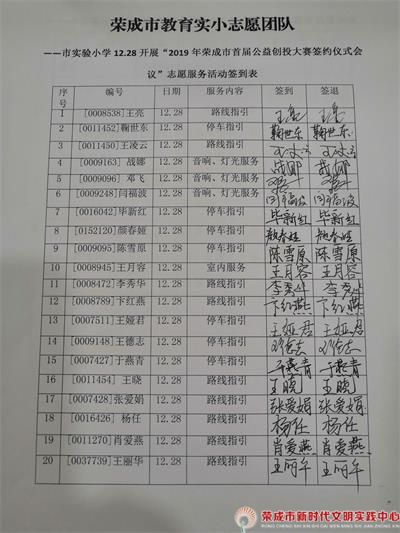 荣成市教育实小志愿团队
——市实验小学12.28开展“2019年荣成市首届公益创投大赛签约仪式会
议”志愿服务活动签到表
序号 编号 日期 服务内容 签到 签退
1 [0008538]王亮 12.28 路线指引 王亮 王亮
2 [0011452]鞠世东 12.28 停车指引 鞠世东 鞠世东
3 [0011450]王凌云 12.28 路线指引
4 [0009163] 战娜 12.28 音响、灯光服务 战娜 战娜
5 [0009096] 邓飞 12.28 音响、灯光服务 邓飞 邓飞
6 [0009248]闫福波 12.28 音响、灯光服务 闫福波
7 [0016042]毕新红 12.28 停车指引 毕新红 毕新红
8 [0152120]颜春娅 12.28 停车指引 颜春娅 颜春娅
9 [0009095]陈雪原 12.28 停车指引 陈雪原 陈雪原
10 [0008945]王月容 12.28 室内服务 王月容 王月容
11 [0008472]李秀华 12.28 路线指引 李秀华 李秀华
12 [0008789]卞红燕 12.28 路线指引 卞红燕 卞红燕
13 [0007511]王娅君 12.28 停车指引 王娅君 王娅君
14 [0009148]王德志 12.28 停车指引
15 [0007427]于燕青 12.28 停车指引 于燕青 于燕青
16 [0011454] 王晓 12.28 路线指引 王晓 王晓
17 [0007428]张爱娟 12.28 路线指引 张爱娟 张爱娟
18 [0016426] 杨任 12.28 路线指引 杨任 杨任
19 [0011270]肖爱燕 12.28 路线指引 肖爱燕 肖爱燕
20 [0037739]王丽华 12.28 路线指引 王丽华 王丽华
荣成市新时代文明实践中心
RONG CHENG SHI XIN SHI DAI WEN MING SHI JIAN ZHONG XIN